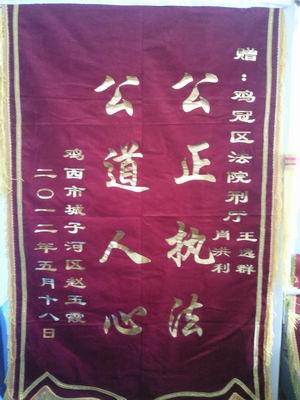 赠：鸡冠区法院刑厅
王逸群
肖洪利
公正执法
公道人心
鸡西市城子河区赵玉霞
二〇一二年五月十八日